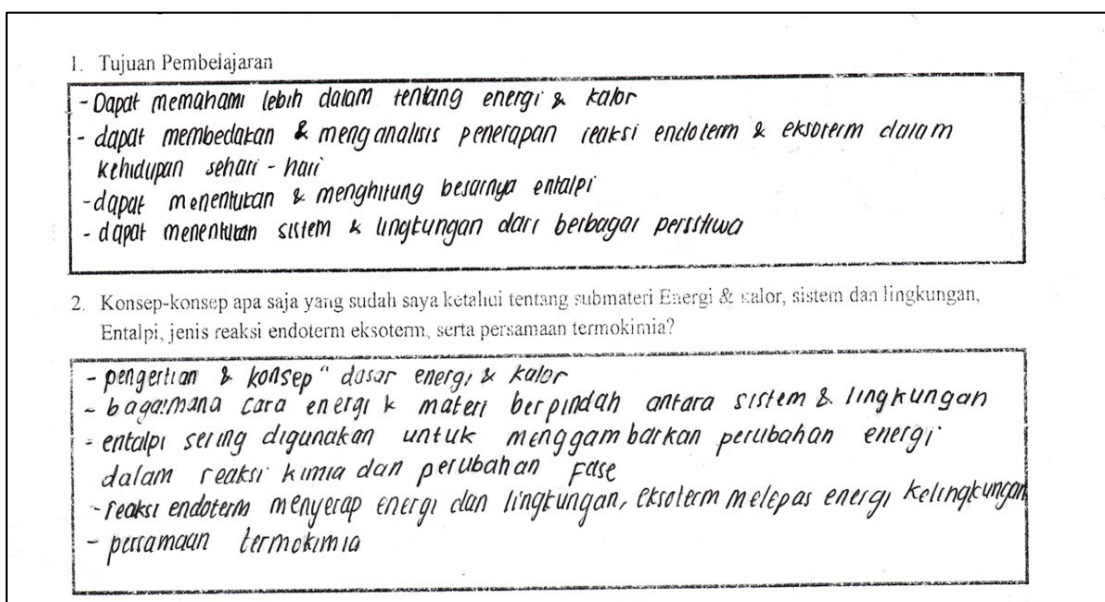 1. Tujuan Pembelajaran
- Dapat memahami lebih dalam tentang energi & kalor
- dapat membedakan & menganalisis penerapan reaksi endoterm & eksoterm dalam
kehidupan sehari - hari
- dapat menentukan & menghitung besarnya entalpi
- dapat menentukan sistem & lingkungan dari berbagai peristiwa
2. Konsep-konsep apa saja yang sudah saya ketahui tentang submateri Energi & kalor, sistem dan lingkungan,
Entalpi, jenis reaksi endoterm eksoterm, serta persamaan termokimia?
- pengertian & konsep" dasar energi & kalor
- bagaimana cara energi & materi berpindah antara sistem & lingkungan
- entalpi sering digunakan untuk menggambarkan perubahan energi
dalam reaksi kimia dan perubahan Fase
- reaksi endoterm menyerap energi dari lingkungan, eksoterm melepas energi kelingkungan
- persamaan termokimia